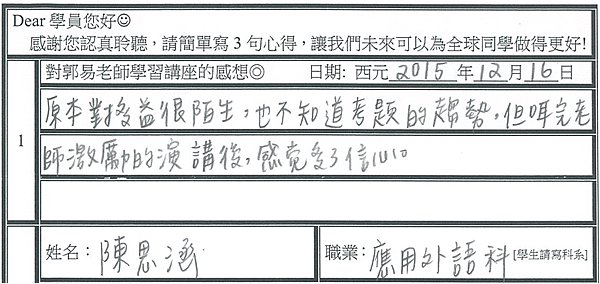 Dear 學員您好☺
感謝您認真聆聽，請簡單寫 3 句心得，讓我們未來可以為全球同學做得更好!
對郭易老師學習講座的感想◎ 日期: 西元 2015 年 12 月 16 日
1
原本對多益很陌生，也不知道考題的趨勢，但聽完老
師激勵的演講後，感覺多了信心。
姓名： 陳思涵
職業： 應用外語科 [學生請寫科系]